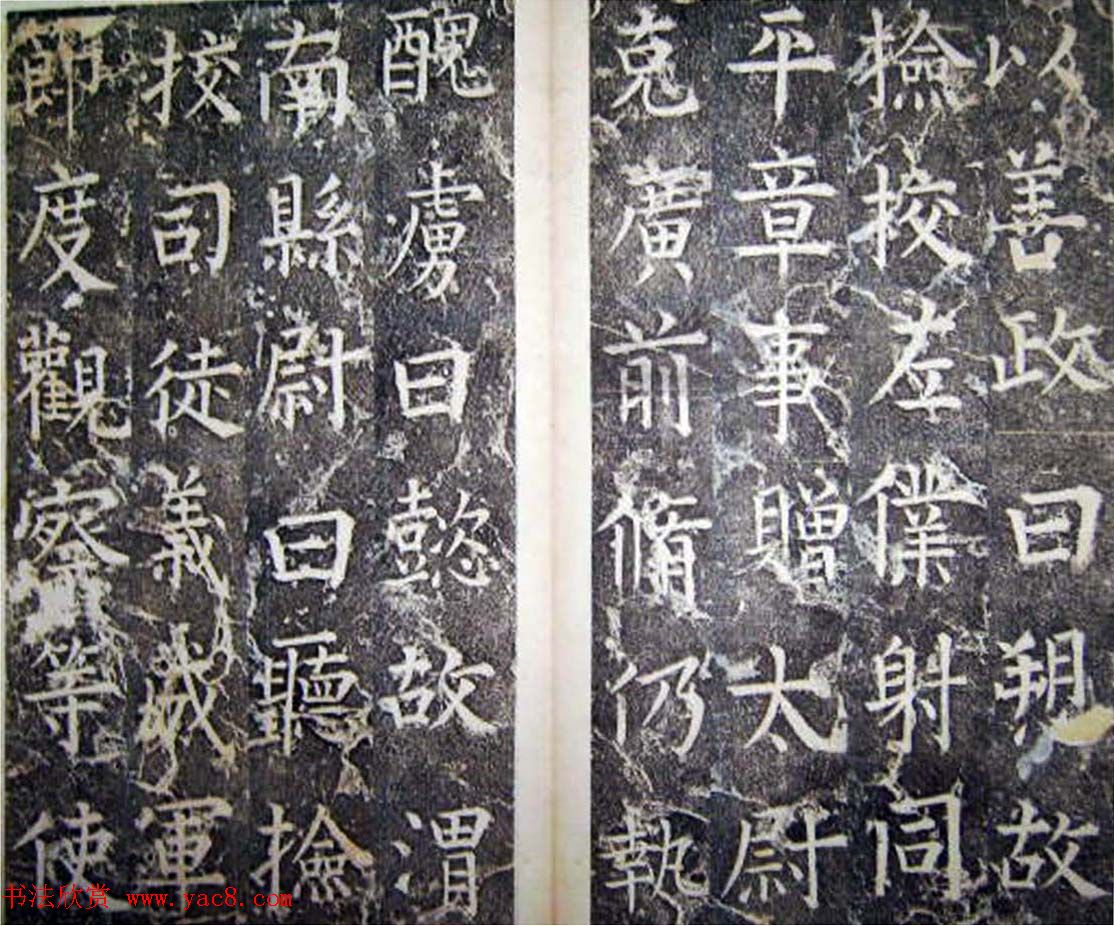 以善政曰朔故
檢挍左僕射同
平章事贈太尉
克廣前脩仍執
醜虜曰懿故渭
南縣尉曰聽撿
挍司徒義成軍
節度觀察等使
书法欣赏 www.yac8.com